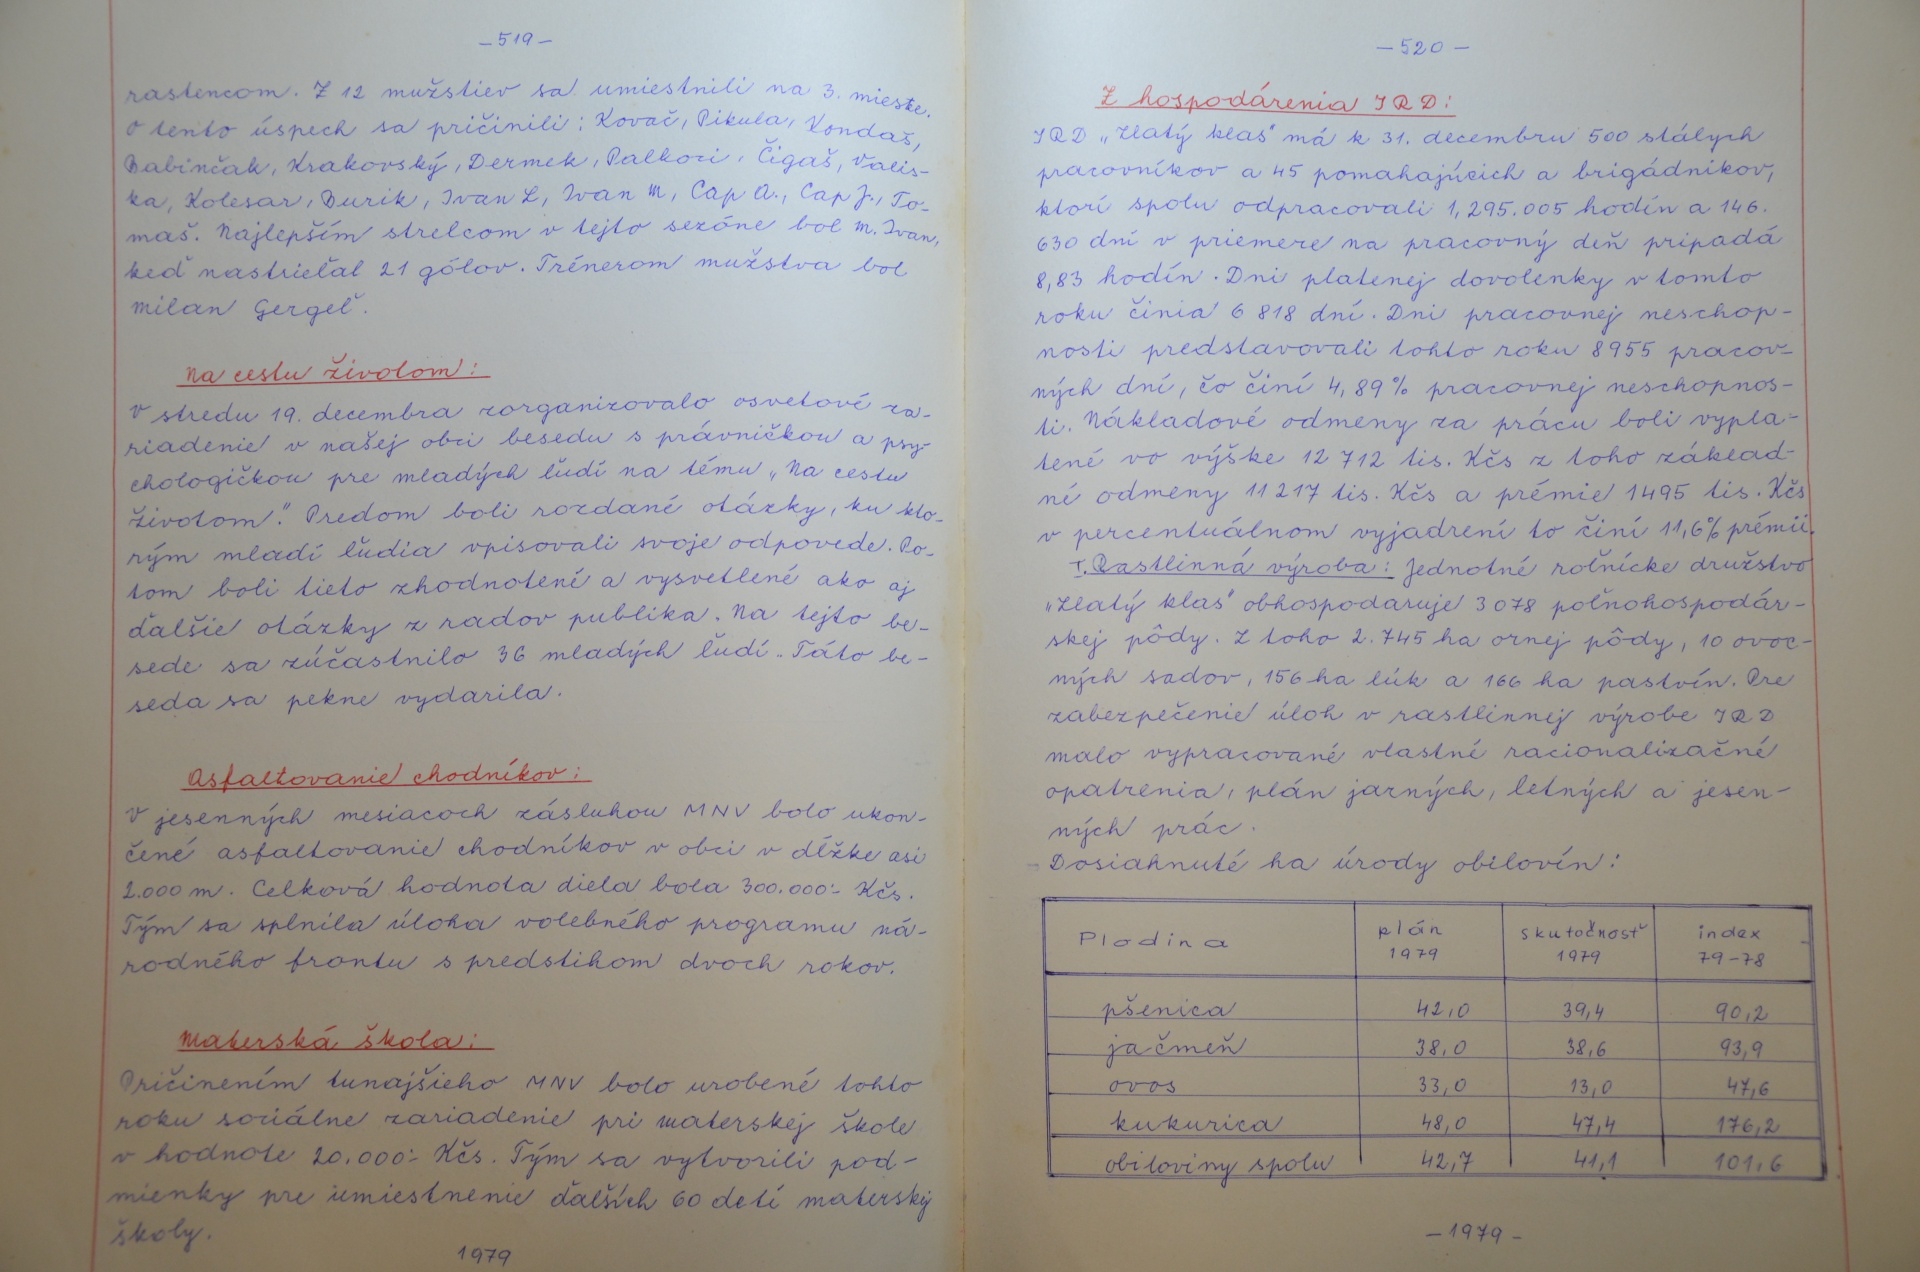 -519-
rastencom. Z 12 mužstiev sa umiestnili na 3. mieste.
O tento úspech sa pričinili: Kovač, Pikula, Kondaš,
Babinčak, Krakovský, Dermek, Palkoci, Čigaš, Valis-
ka, Kolesar, Burik, Ivan L, Ivan M, Cap A., Cap J., To-
maš. Najlepším strelcom v tejto sezóne bol M. Ivan,
keď nastrieľal 21 gólov. Trénerom mužstva bol
Milan Gergeľ.
Na cestu životom:
V stredu 19. decembra zorganizovalo osvetové za-
riadenie v našej obci besedu s právničkou a psy-
chologičkou pre mladých ľudí na tému „Na cestu
životom." Predom boli rozdané otázky, ku kto-
rým mladí ľudia vpisovali svoje odpovede. Po-
tom boli tieto zhodnotení a vysvetlené ako aj
ďalšie otázky z radov publika. Na tejto be-
sede sa zúčastnilo 36 mladých ľudí. Táto be-
seda sa pekne vydarila.
Asfaltovanie chodníkov:
V jesenných mesiacoch zásluhou MNV bolo ukon-
čené asfaltovanie chodníkov v obci v dĺžke asi
2.000 m. Celková hodnota diela bola 300.000.- Kčs.
Tým sa splnila úloha volebného programu ná-
rodného frontu s predstihom dvoch rokov.
Materská škola:
Pričinením tunajšieho MNV bolo urobené tohto
roku sociálne zariadenie pri materskej škole
v hodnote 20.000.- Kčs. Tým sa vytvorili pod-
mienky pre umiestnenie ďalších 60 detí materskej
školy.
1979
-520-
Z hospodárenia JRD:
JRD „Zlatý klas" má k 31. decembru 500 stálych
pracovníkov a 45 pomahajúcich a brigádnikov,
ktorí spolu odpracovali 1,295.005 hodín a 146.
630 dní v priemere na pracovný deň pripadá
8,83 hodín. Dni platenej dovolenky v tomto
roku činia 6 818 dní. Dni pracovnej neschop-
nosti predstavovali tohto roku 8955 pracov-
ných dní, čo činí 4,89% pracovnej neschopnos-
ti. Nákladové odmeny za prácu boli vypla-
tené vo výške 12 712 tis. Kčs z toho základ-
né odmeny 11 217 tis. Kčs a prémie 1495 tis. Kčs
v percentuálnom vyjadrení to činí 11,6% prémií.
I. Rastlinná výroba: Jednotné roľnícke družstvo
„Zlatý klas" obhospodaruje 3 078 poľnohospodár-
skej pôdy. Z toho 2.745 ha ornej pôdy, 10 ovoc-
ných sadov, 156 ha lúk a 166 ha pastvín. Pre
zabezpečenie úloh v rastlinnej výrobe JRD
malo vypracované vlastné racionalizačné
opatrenia, plán jarných, letných a jesen-
ných prác.
Dosiahnuté ha úrody obilovín:
Plodina plán 1979 skutočnosť 1979 index 79-78
pšenica 42,0 39,4 90,2
jačmeň 38,0 38,6 93,9
ovos 33,0 13,0 47,6
kukurica 48,0 47,4 176,2
obiloviny spolu 42,7 41,1 101,6
-1979-